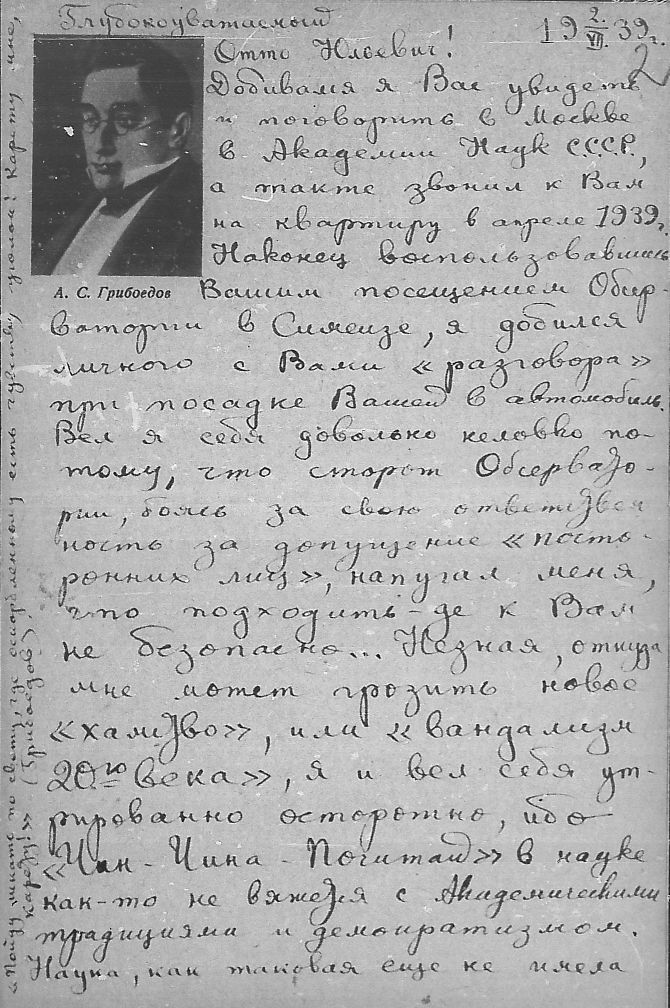 Глубокоуважаемый
19 2/VII 39 г.
2
Отто Юльевич!
Добивался я Вас увидеть
и поговорить в Москве
в Академии Наук С.С.С.Р.,
а также звонил к Вам
на квартиру в апреле 1939 г.
Наконец воспользовавшись
А. С. Грибоедов
Вашим посещением Обсер-
ватории в Симеизе, я добился
личного с Вами «разговора»
при посадке Вашей в автомобиль.
Вел я себя довольно неловко по-
тому, что сторож Обсервато-
рии, боясь за свою ответствен
ность за допущение «посто-
ронних лиц», напугал меня,
что подходить-де к Вам
не безопасно... Незная, откуда
мне может грозить новое
«хамство», или «вандализм
20го века», я и вел себя ут-
рированно осторожно, ибо
«Чин-Чина-Почитай» в науке
как-то не вяжется с Академическими
традициями и демократизмом.
Наука, как таковая еще не имела
«Пойду искать по свету, где оскорбленному есть чувству уголок! Карету мне,
карету!» (Грибоедов).